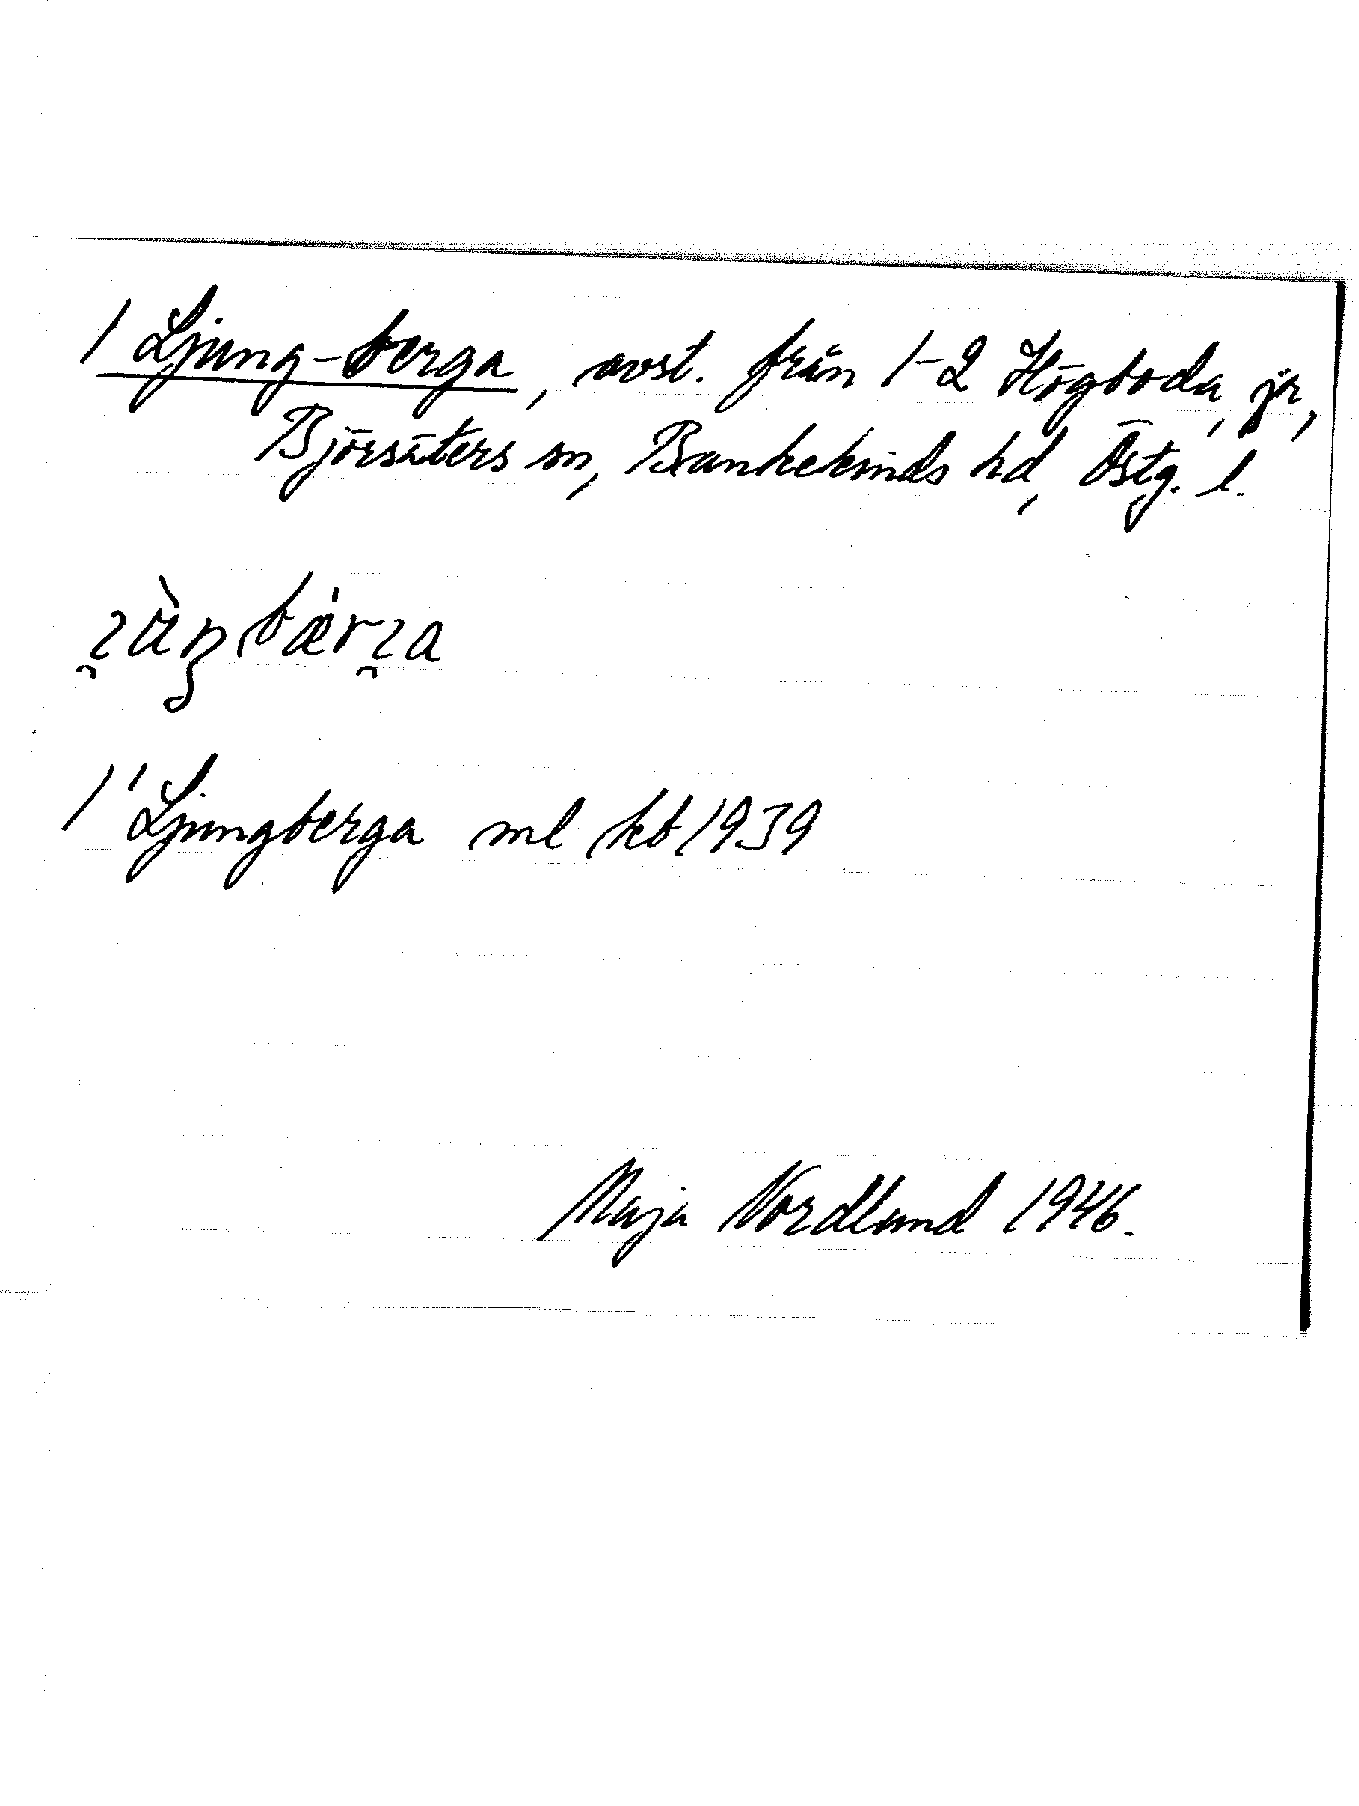 1 Ljung-berga, avst. från 1-2 Högboda, jr,
Björsäters sn, Bankekinds hd, Östg. l.
1' Ljungberga ml kb 1939
Maja Nordlund 1946.